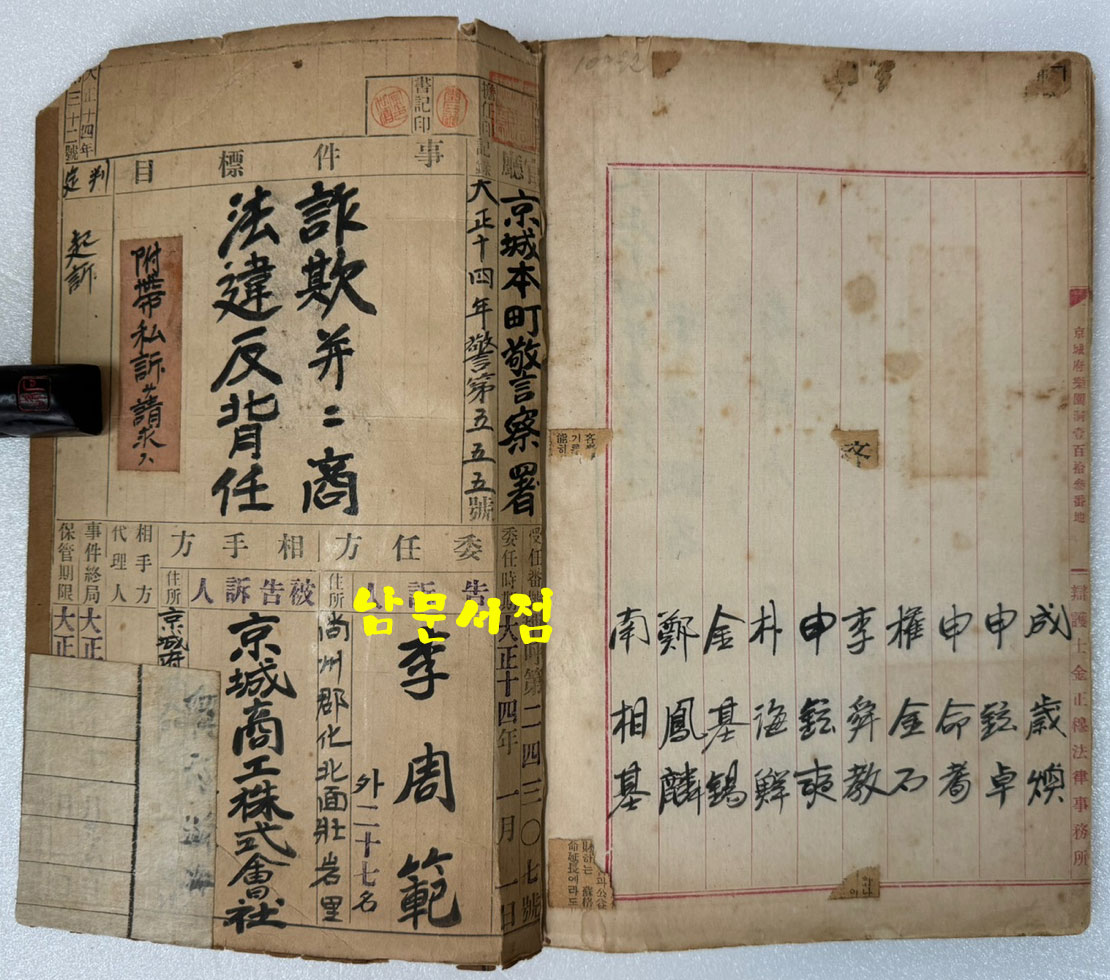 成歲煥
申鉉卓
申命耆
權金石
李舜敎
申鉉奭
朴海鮮
金基錫
鄭鳳麟
南相基
京城府樂園洞壹百拾叁番地
辯護士金正穆法律事務所
書記印
京城本町警察署
大正十四年警第五五五號
事件標目
詐欺并ニ商
法違反背任
附帶私訴ヲモ請求ス
判
起訴
委任方
相手方
告訴人
李周範
外二十七名
住所
尙州郡化北面壯岩里
被告訴人
京城商工株式會社
住所
京城府
相手方
代理人
事件終局
保管期限
大正
大正
第二四三〇七號
大正十四年一月一日
남문서점